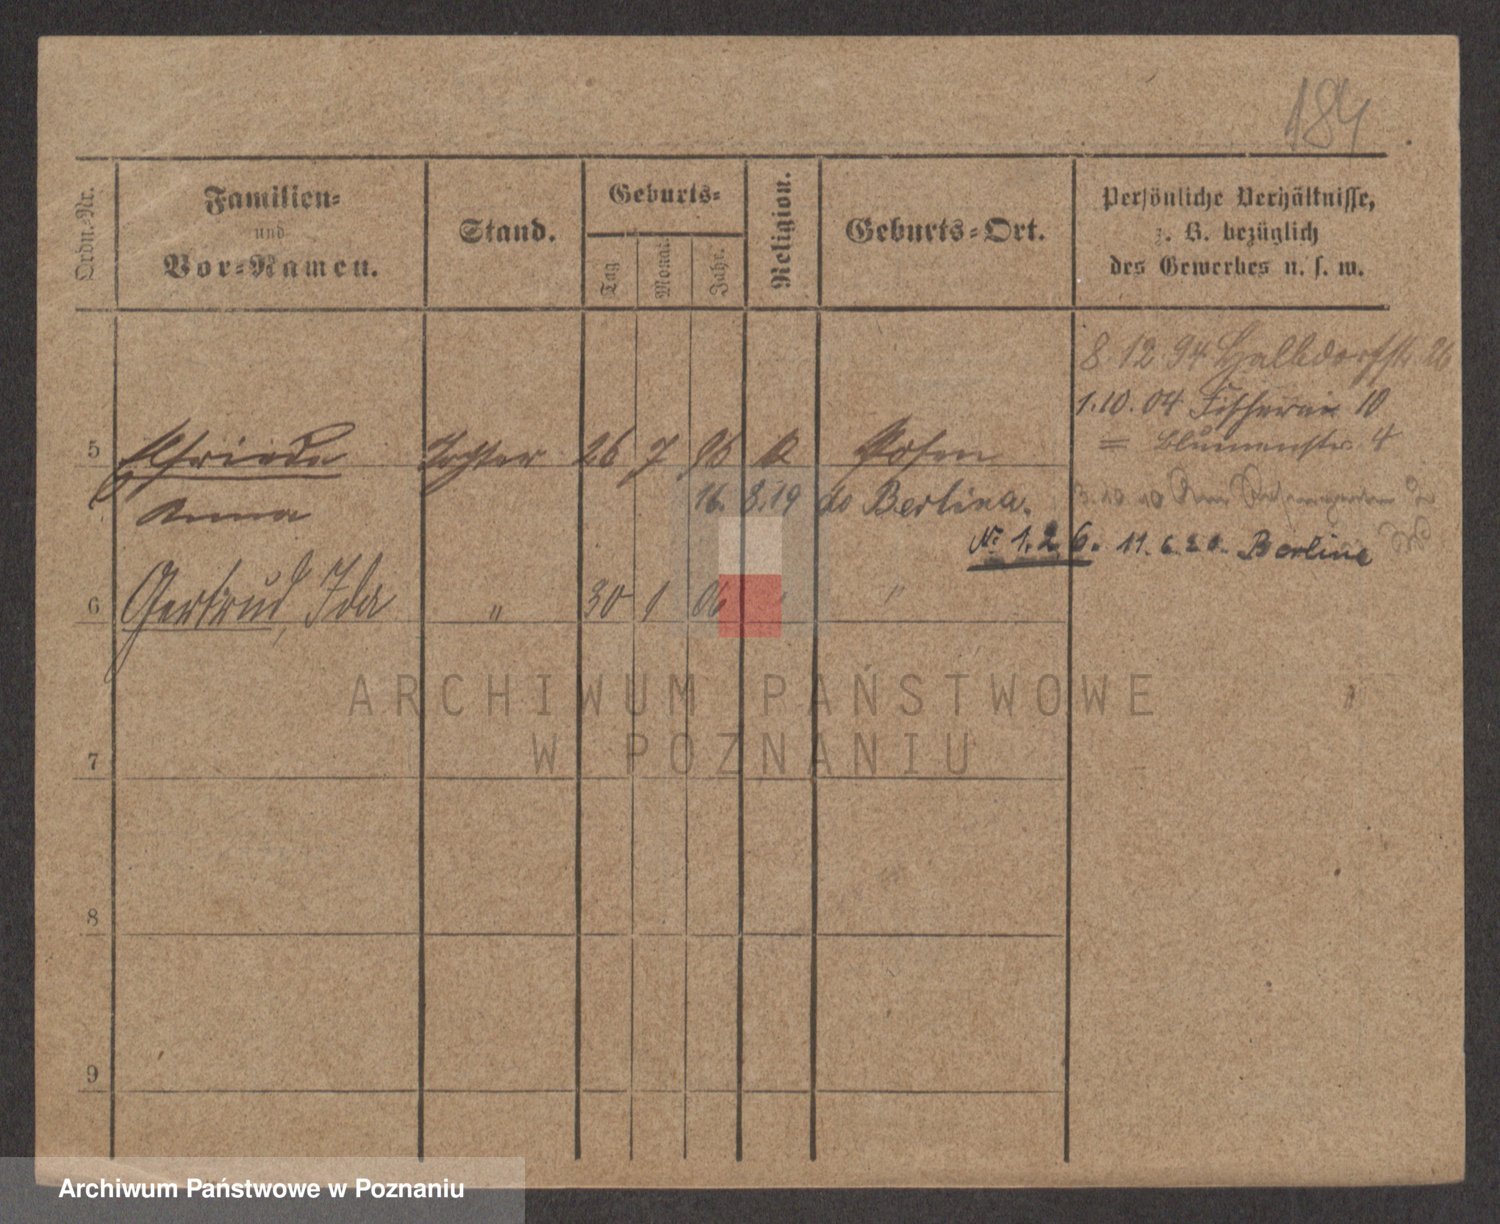 184
Ordn.-Nr.
Familien-
und
Vor-Namen.
Stand.
Geburts-
Tag
Monat.
Jahr.
Religion.
Geburts-Ort.
Persönliche Verhältnisse,
z. B. bezüglich
des Gewerbes u. s. w.
8.12.94 Halbdorfstr 26
1.10.04 Fischerei 10
= Blumenstr. 4
5 Elfriede Tochter 26 7 Posen
Anna 16. 8.19 do Berlina.
3.10.10
Nr 1.2 6. 11.6.20. Berline
6 Gertrud, Ida " 30 1 06 " "
7
8
9
ARCHIWUM PAŃSTWOWE
W POZNANIU
Archiwum Państwowe w Poznaniu